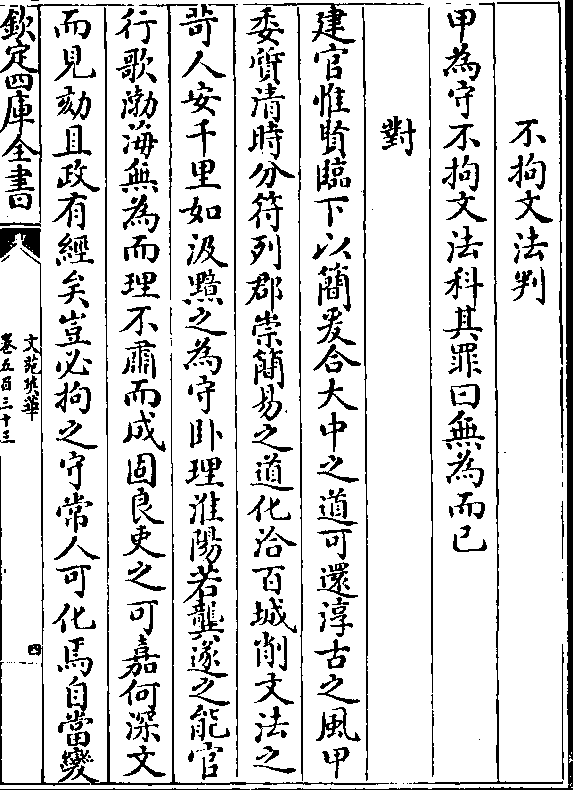 不拘文法判
甲為守不拘文法科其罪曰無為而已
對
建官惟賢臨下以簡爰合大中之道可還淳古之風甲
委質清時分符列郡崇簡易之道化洽百城削文法之
苛人安千里如汲黯之為守卧理淮陽若龔遂之能官
行歌渤海無為而理不肅而成固良吏之可嘉何深文
而見劾且政有經矣豈必拘之守常人可化焉自當變
欽定四庫全書
文苑英華
卷五百三十三
四